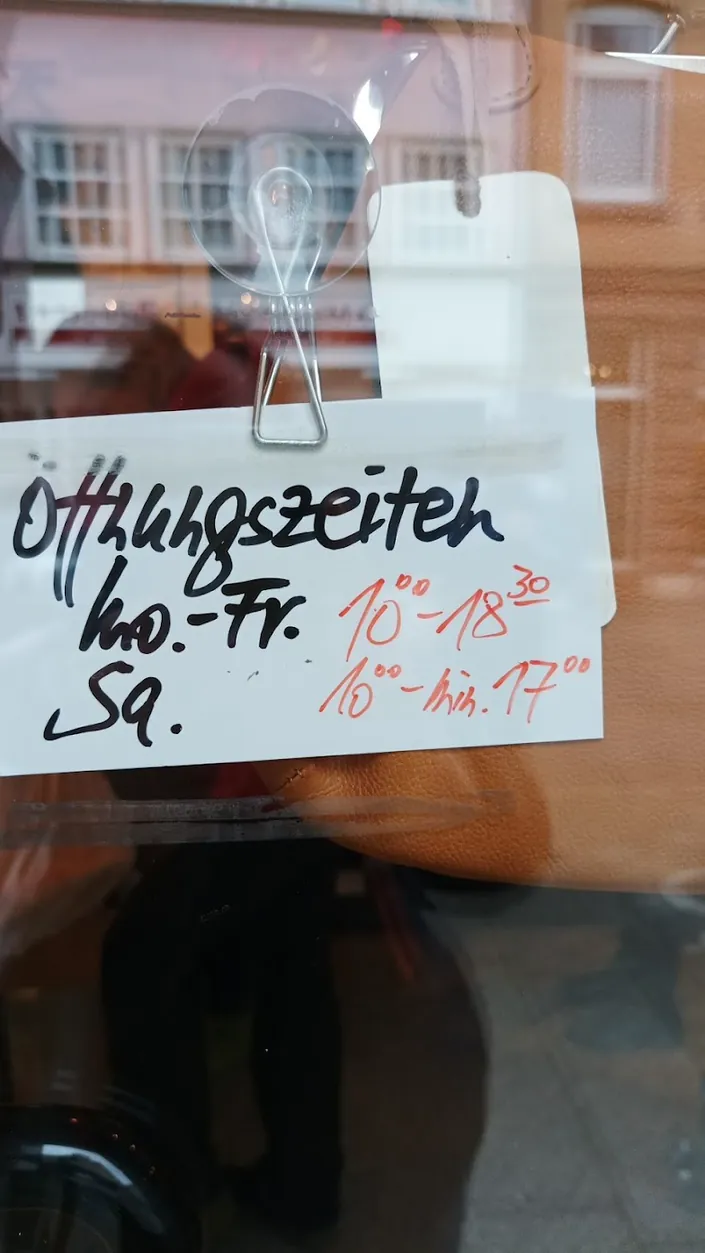 Öffnungszeiten
Mo.-Fr. 10⁰⁰-18³⁰
Sa. 10⁰⁰-min. 17⁰⁰